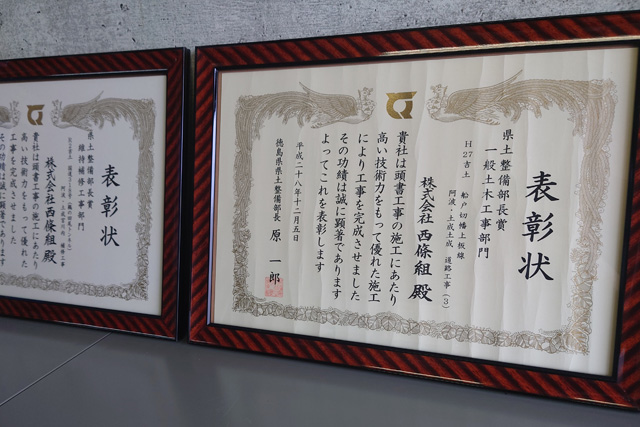 表彰状
県土整備部長賞
一般土木工事部門
H27吉土 船戸切幡上板線
阿波・土成土成 道路工事(3)
株式会社 西條組 殿
貴社は頭書工事の施工にあたり
高い技術力をもって優れた施工
により工事を完成させました
その功績は誠に顕著であります
よってこれを表彰します
平成二十八年十二月五日
徳島県県土整備部長 原 一郎
表彰状
県土整備部長賞
維持補修工事部門
株式会社 西條組 殿
貴社は頭書工事の施工にあたり
高い技術力をもって優れた
工事を完成させました
その功績は誠に顕著であります